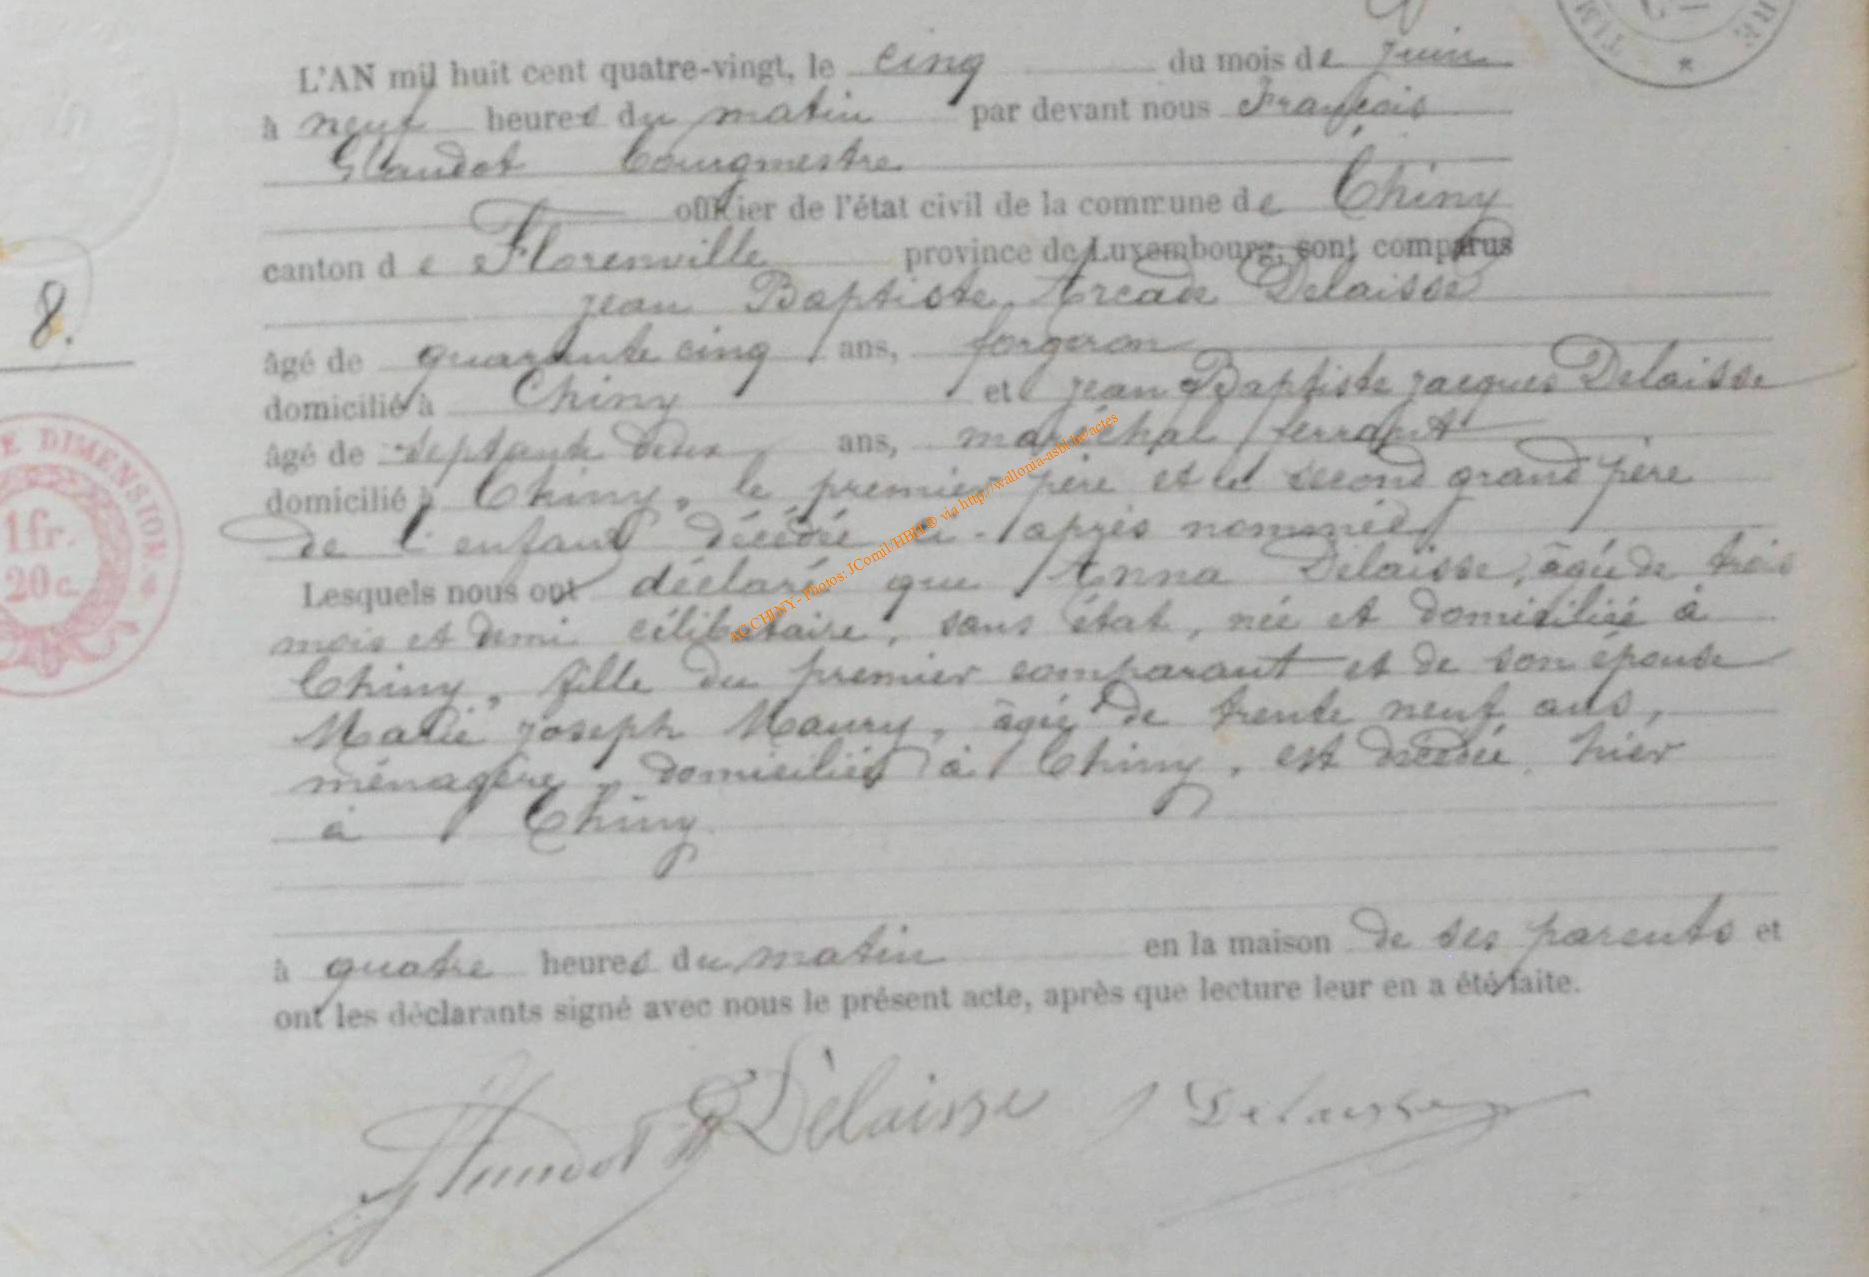 L'AN mil huit cent quatre-vingt, le cinq du mois de juin
à neuf heures du matin par devant nous François
Glaudot bourgmestre
officier de l'état civil de la commune de Chiny
canton de Florenville province de Luxembourg, sont comparus
jean Baptiste Arcade Delaisse
8.
âgé de quarante cinq ans, forgeron
domicilié à Chiny et jean Baptiste jacques Delaisse
âgé de septante deux ans, maréchal ferrant
domicilié à Chiny, le premier père et le second grand père
de l'enfant décédée ci-après nommée
Lesquels nous ont déclaré que Anna Delaisse, âgée de trois
mois et demi célibataire, sans état, née et domiciliée à
Chiny, fille du premier comparant et de son épouse
Marie joseph Maury, âgée de trente neuf ans,
ménagère, domiciliée à Chiny, est décédée hier
à Chiny
à quatre heures du matin en la maison de ses parents et
ont les déclarants signé avec nous le présent acte, après que lecture leur en a été faite.
Glaudot Delaisse J Delaisse
E DIMENSION
1fr.
20c.
TIM
RE
AC CHINY - Photos: JComil/HBM® via http://wallonia-asbl.be/actes